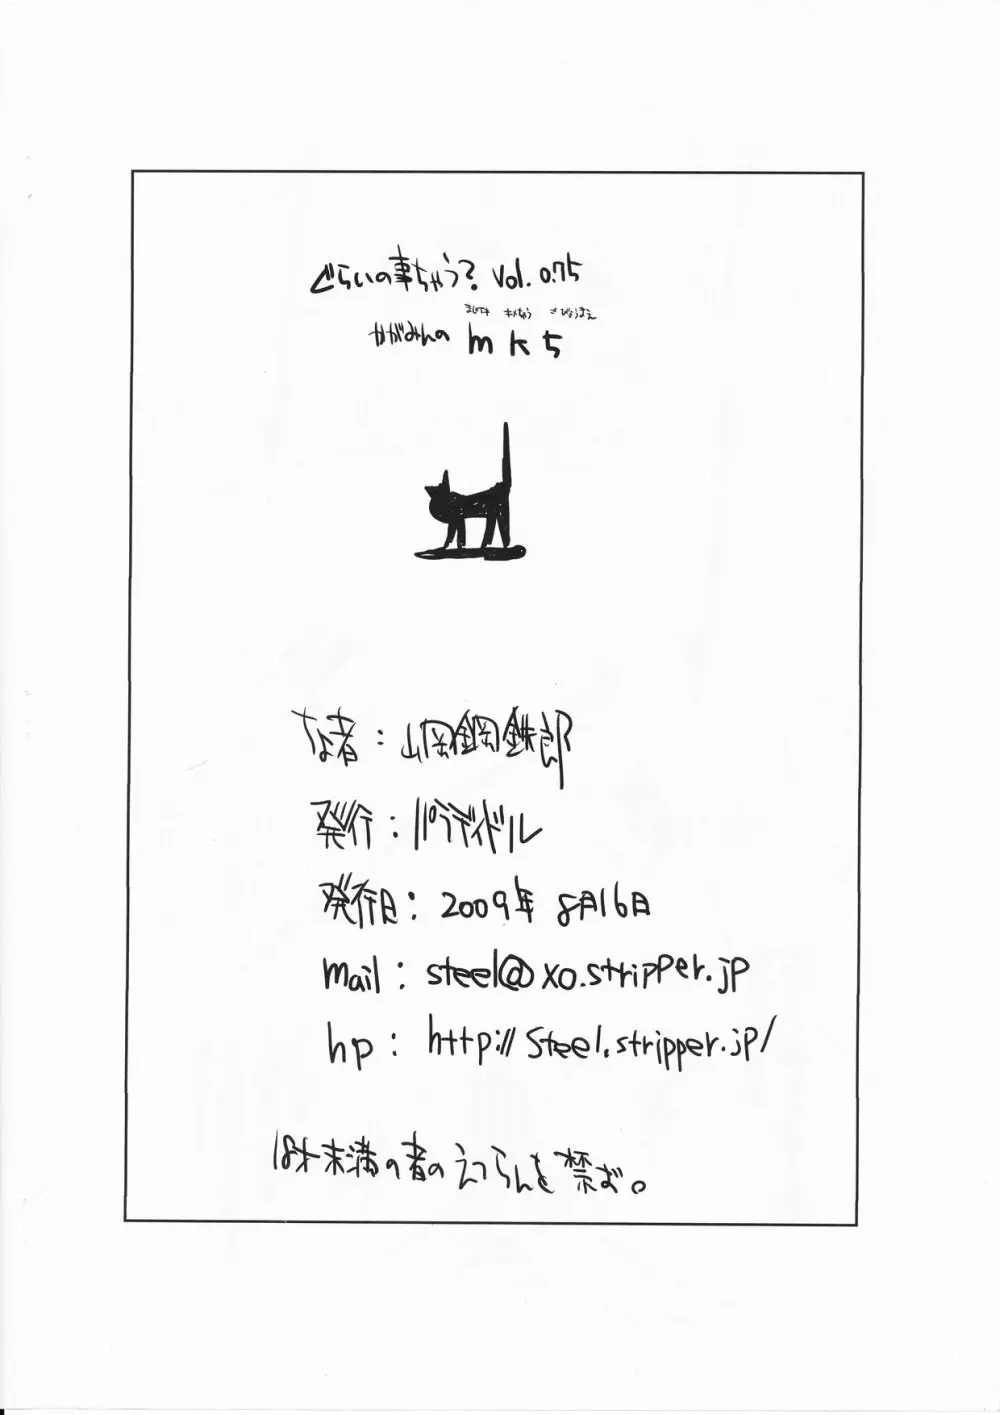 ぐらいの事ちゃう? Vol. 0.75
かがみんの mk5
ちょ者：山岡鋼鉄郎
発行：パラディドル
発行日：2009年 8月16日
mail：steel@xo.stripper.jp
hp：http://steel.stripper.jp/
18才未満の者のえつらんを禁ず。